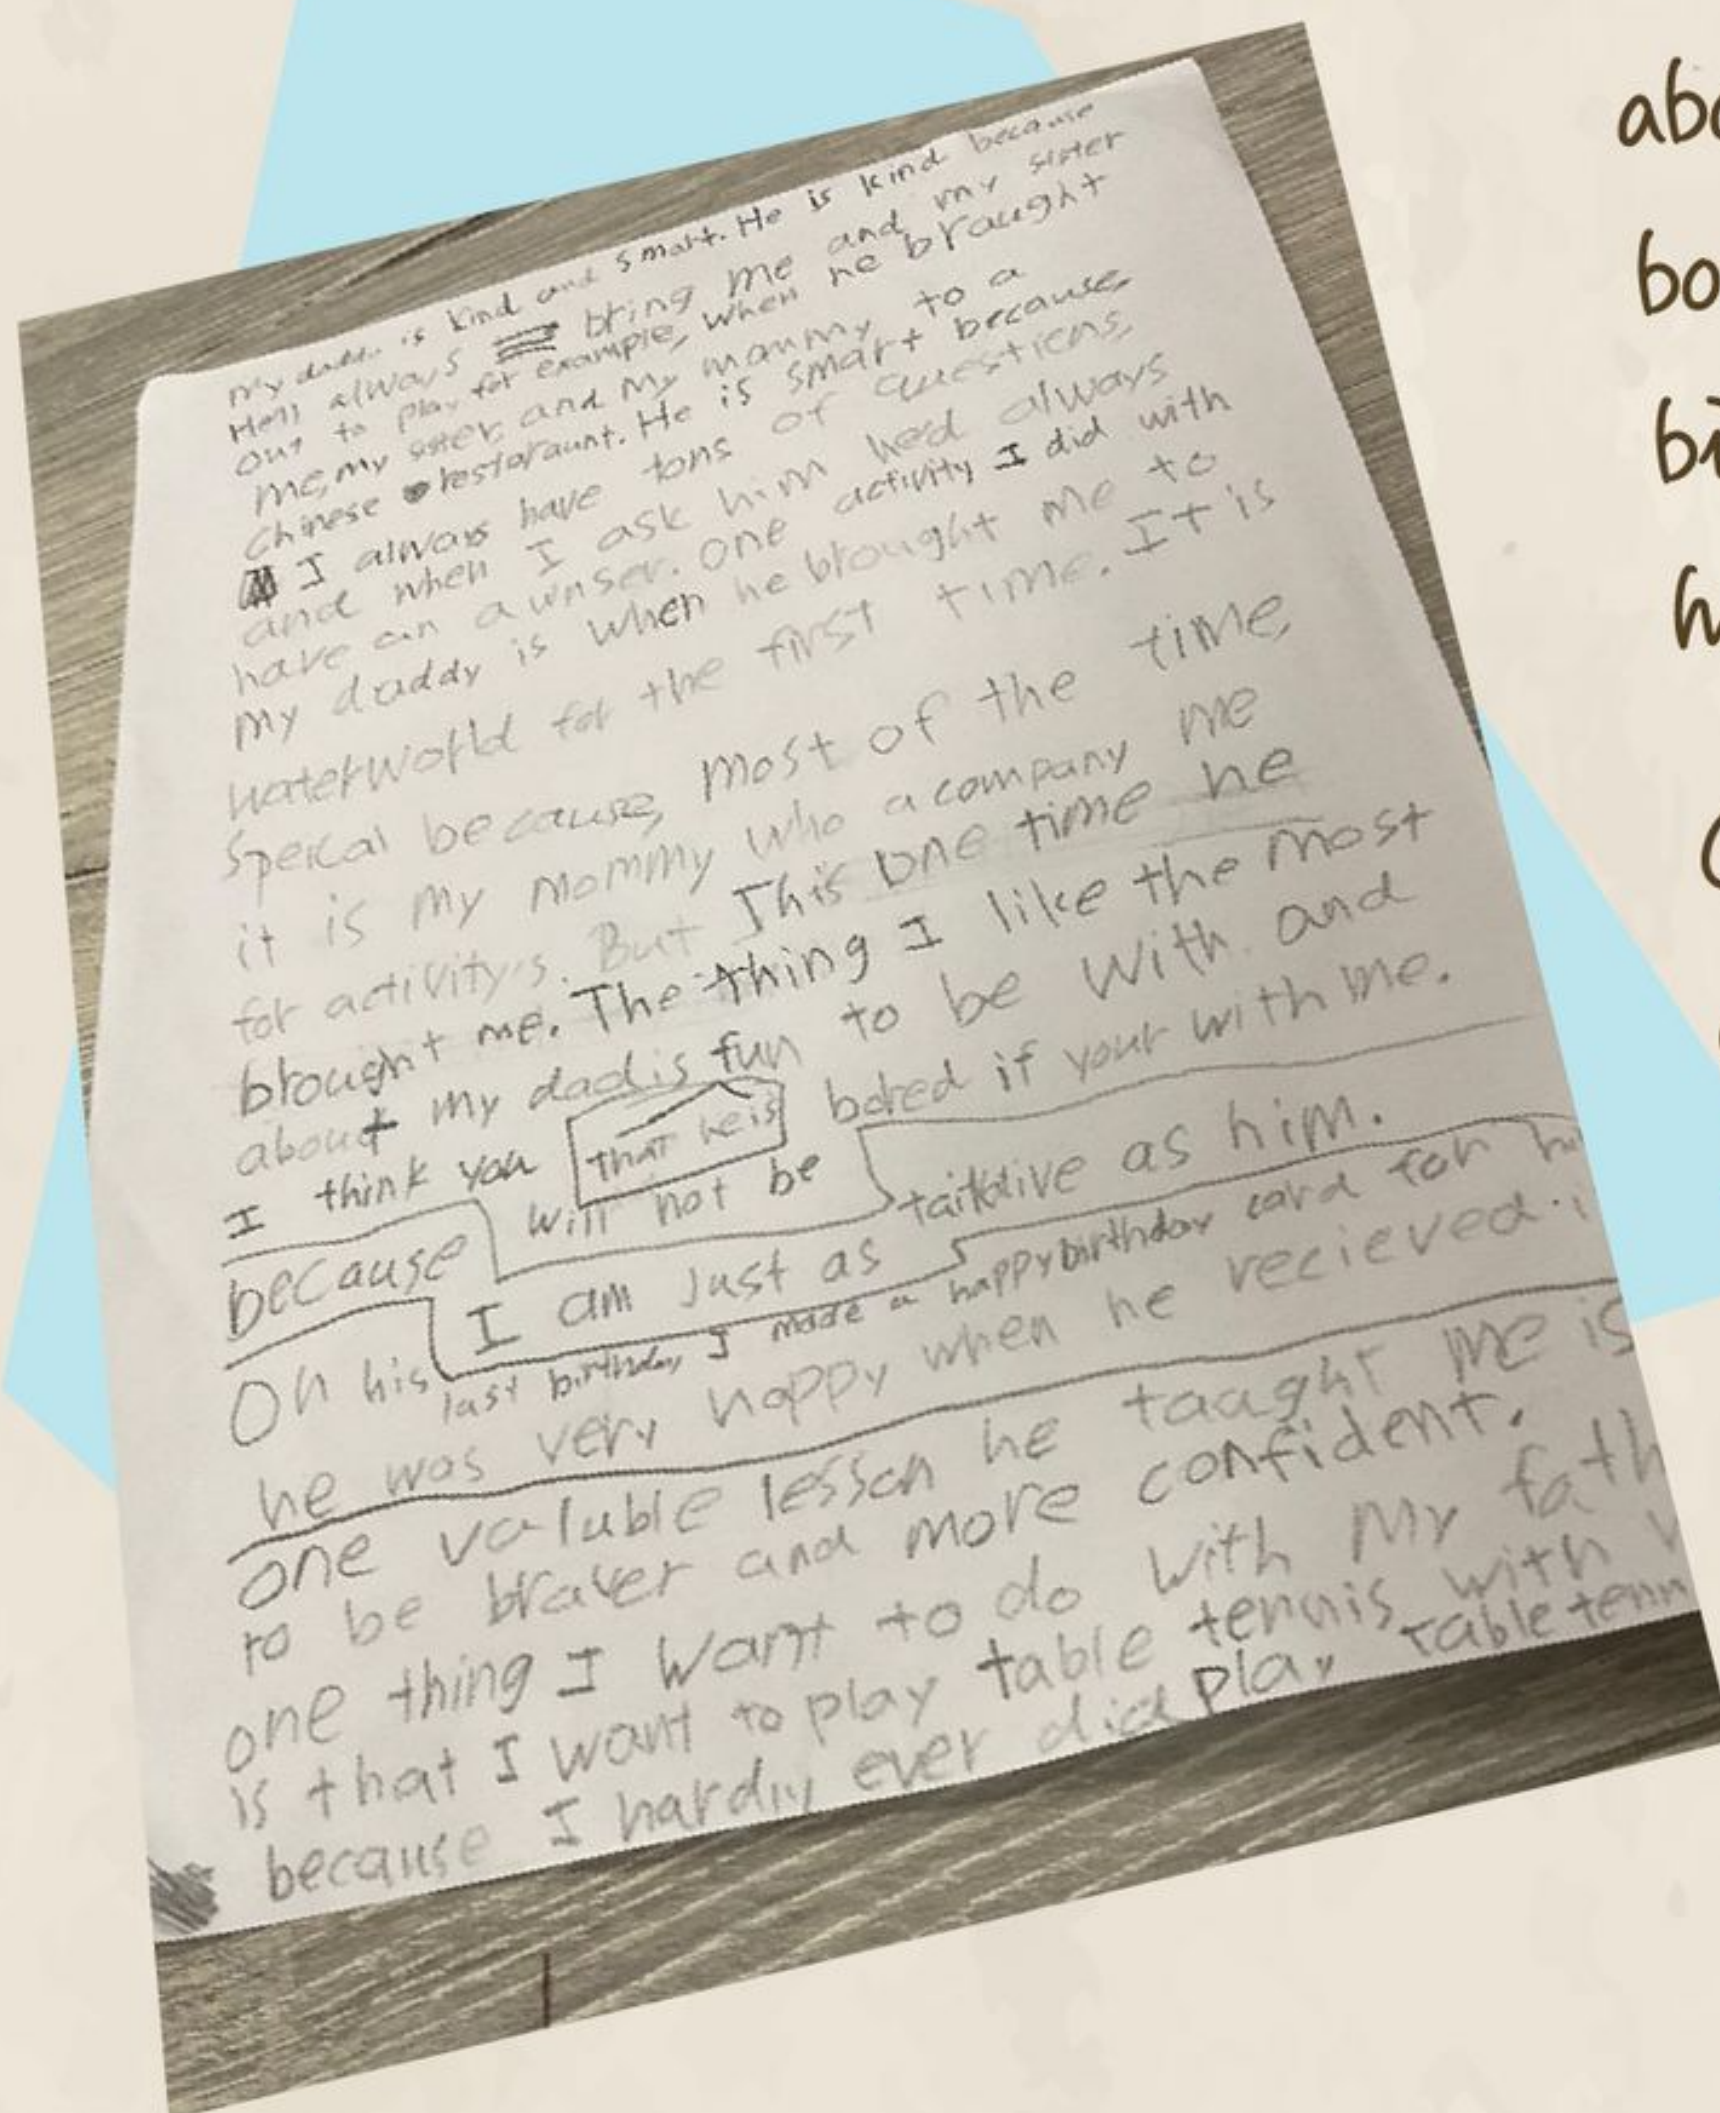 My daddy is kind and smart. He is kind because
He'll always bring me and my sister
out to play for example, when he braught
me, my sister and my mommy to a
Chinese restaraunt. He is smart because,
I always have tons of questions,
and when I ask him he'd always
have an awnser. One activity I did with
my daddy is when he brought me to
waterworld for the first time. It is
speical because, most of the time,
it is my mommy who acompany me
for activity's. But This one time he
brought me. The thing I like the most
about my dad is fun to be with and
that he is
I think you will not be bored if your with me.
because I am just as talktive as him.
On his last birthday, I made a happy birthday card for
he was very happy when he recieved
one valuble lesson he taught me is
to be braver and more confident.
one thing I want to do with my fath
is that I want to play table tennis with
because I hardly ever did play table tenn
abo
bo